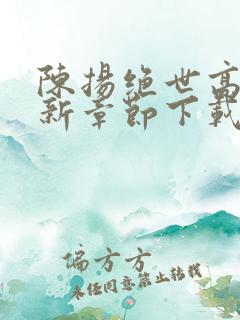 陳揚絕世高
新章節下載
偏方方
未经同意禁止转载